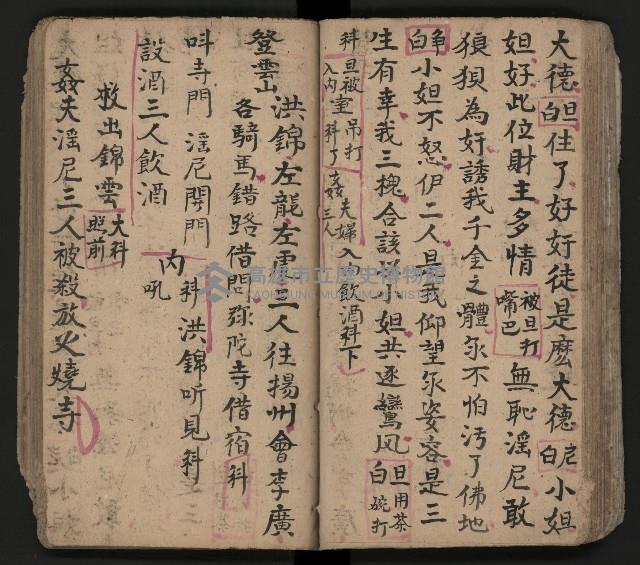 大德 旦白 住了好奸徒是麽大德 尼白 小姐
姐好此位財主多情 被旦打嘴巴 無恥淫尼敢
狼狽為奸誘我千金之體豕不怕汚了佛地
净白 小姐不怒伊二人是我仰望豕姿容是三
生有幸我三槐合該 姐共逐鸞风 旦用茶碗打 白
科 旦被室吊打 入内 科了 姦夫婦三人 入 飲酒科下
洪錦左龍左虎三人往揚州會李廣
登雲山 各騎馬錯路借問弥陀寺借宿 科
叫寺門 淫尼開門 内吼 科 洪錦听見科
設酒三人飲酒
救出錦雲 大科照前
姦夫淫尼三人被殺放火燒寺
高雄市立歷史博物館
KAOHSIUNG MUSEUM OF HISTORY